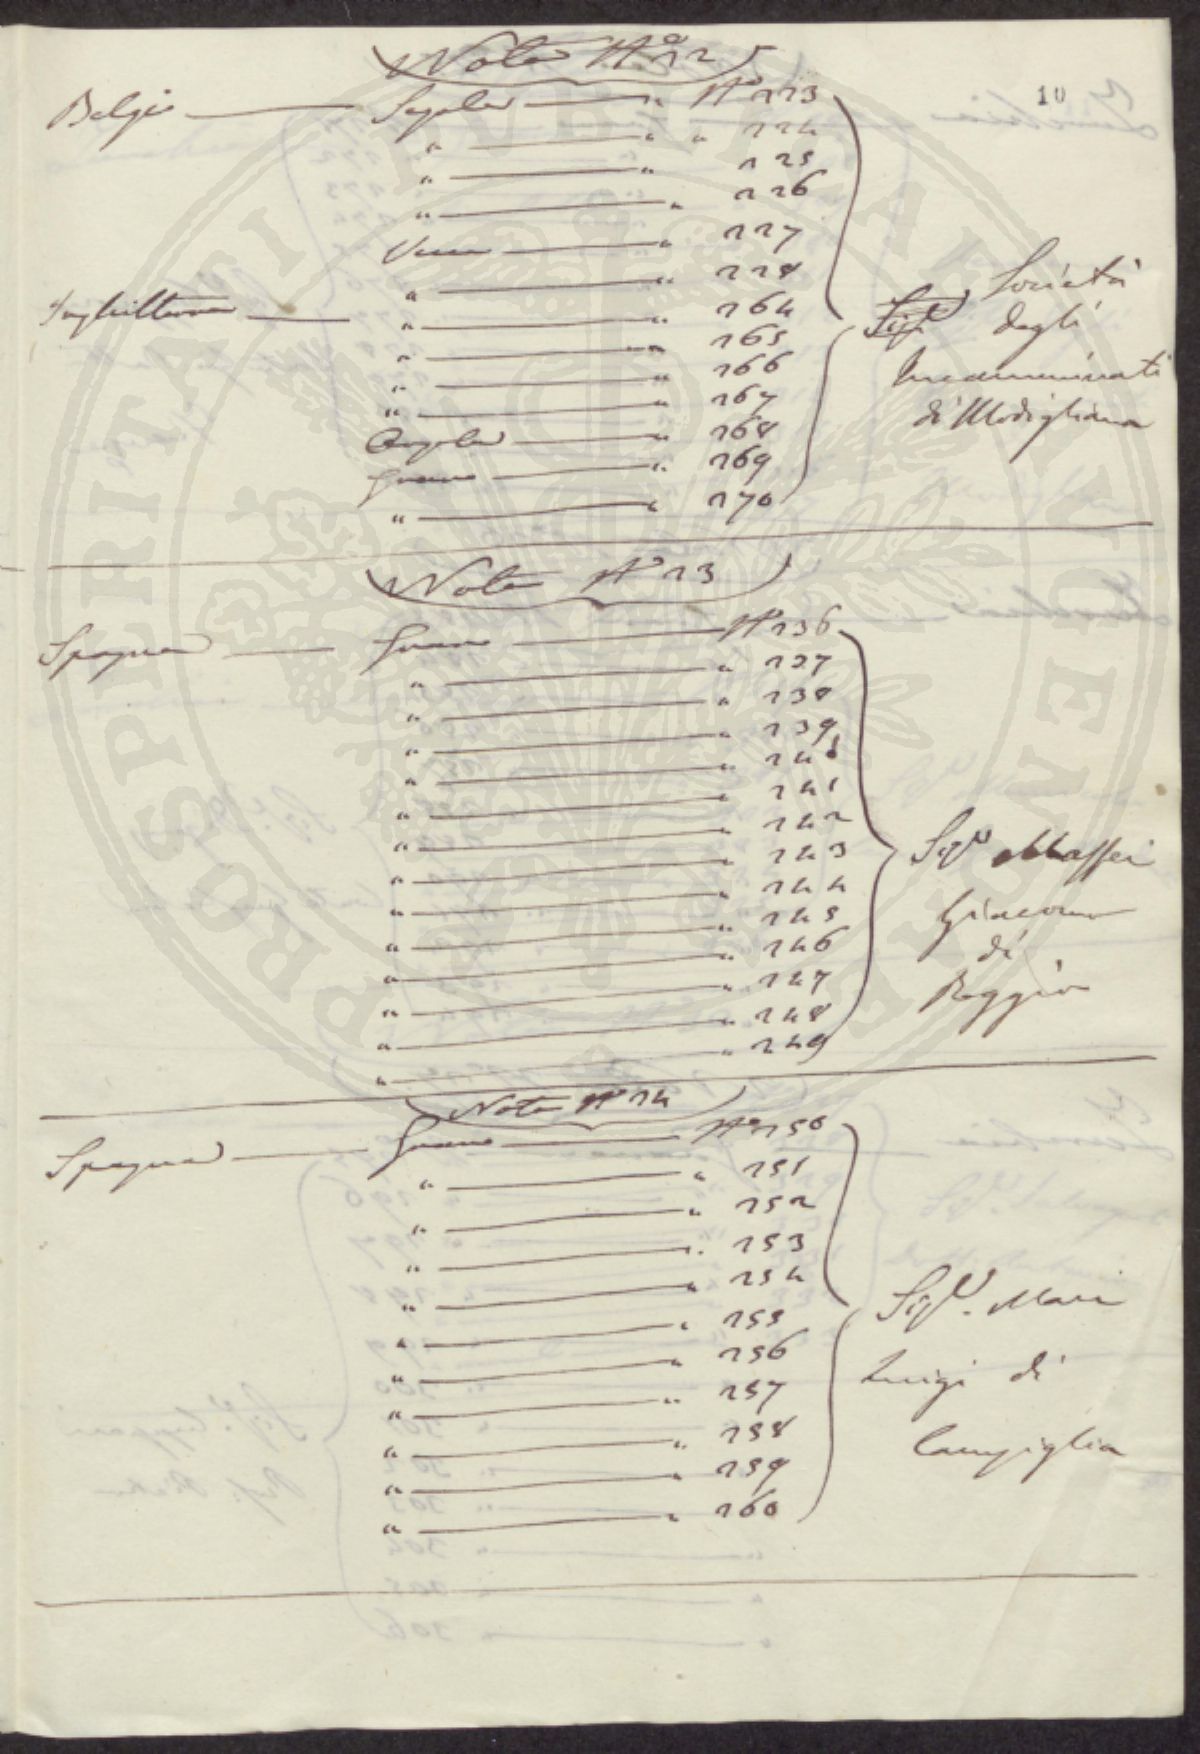 Nota N° 12
10
Belgio — Segala — " N° 123
" — " " 124
" — " 125
" — " 126
Vena — " 127
" — " 128
Inghilterra — " — " 164
" — " 165
" — " 166
" — " 167
Segala — " 168
Grano — " 169
" — " 170
Società
degli
Incamminati
di Modigliana
Nota N° 13
Spagna — Grano — N° 136
" — " 137
" — " 138
" — " 139
" — " 140
" — " 141
" — " 142
" — " 143
" — " 144
" — " 145
" — " 146
" — " 147
" — " 148
" — " 149
Sigr Maffei
Giacomo
di
Reggio
Nota N° 14
Spagna — Grano — N° 150
" — " 151
" — " 152
" — " 153
" — " 154
" — " 155
" — " 156
" — " 157
" — " 158
" — " 159
" — " 160
Sigr. Mari
Luigi di
Campiglia
PROSPERITATI PUBLICAE AUGENDAE